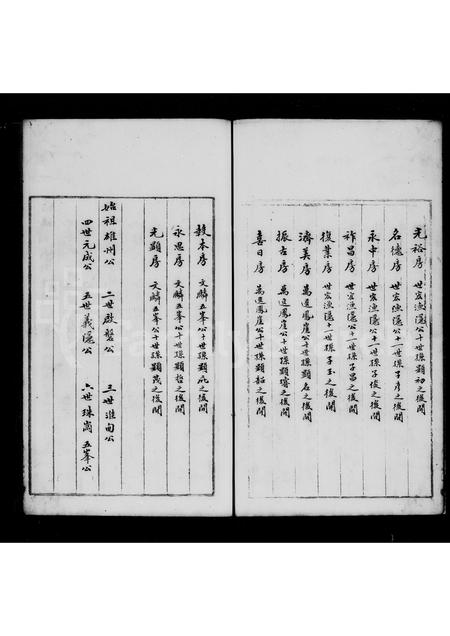 光裕房 世宏漁隱公十世孫顯初之後開
名德房 世宏漁隱公十一世孫子彥之後開
永中房 世宏漁隱公十一世孫子俊之後開
祚昌房 世宏漁隱公十一世孫子昌之後開
復業房 世宏漁隱公十一世孫子玉之後開
濟美房 萬選鳳崖公十世孫顯名之後開
振古房 萬選鳳崖公十世孫顯濟之後開
喜日房 萬選鳳崖公十世孫顯韜之後開
敦本房 文麟五峯公十世孫顯之後開
永思房 文麟五峯公十世孫顯哲之後開
光顯房 文麟五峯公十世孫顯茂之後開
始祖雄州公 二世啟盤公 三世淮甸公
四世元成公 五世義隱公 六世珠崗 五峯公